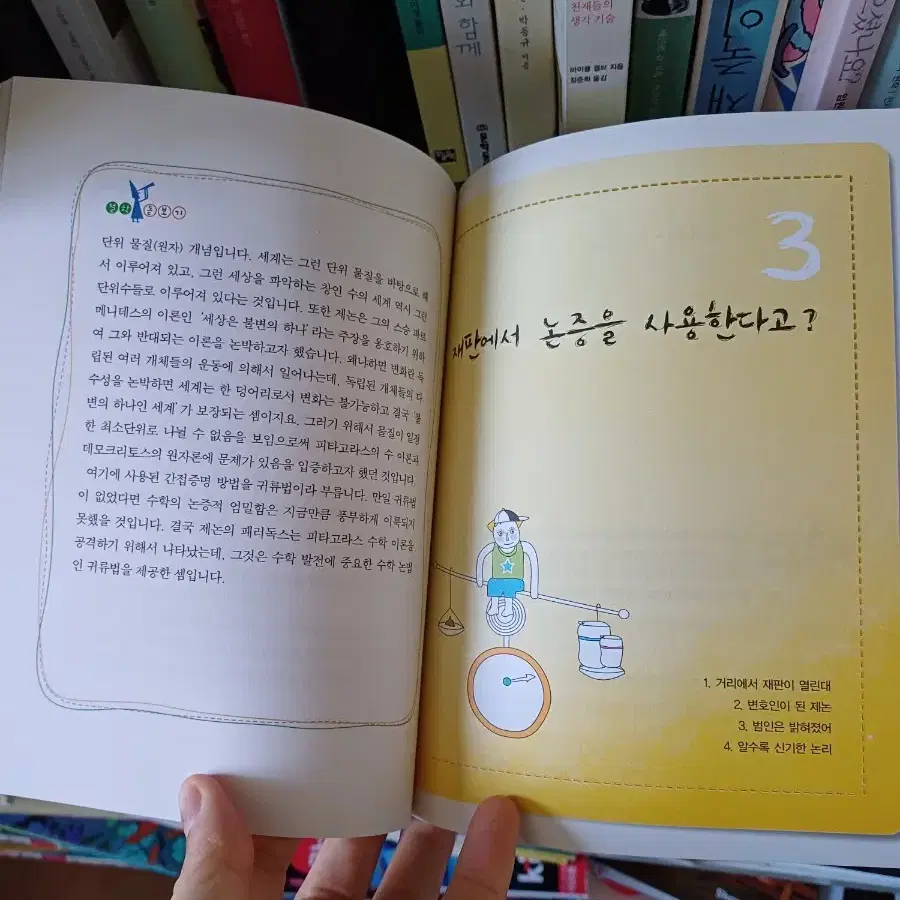 와 함께
박동규 지음
천재들의
생각 기술
마이클 겔브 지음
정준희 옮김
철학 돋보기
단위 물질(원자) 개념입니다. 세계는 그런 단위 물질을 바탕으로 해
서 이루어져 있고, 그런 세상을 파악하는 창인 수의 세계 역시 그런
단위수들로 이루어져 있다는 것입니다. 또한 제논은 그의 스승 파르
메니데스의 이론인 '세상은 불변의 하나'라는 주장을 옹호하기 위하
여 그와 반대되는 이론을 논박하고자 했습니다. 왜냐하면 변화란 독
립된 여러 개체들의 운동에 의해서 일어나는데, 독립된 개체들의 다
수성을 논박하면 세계는 한 덩어리로서 변화는 불가능하고 결국 '불
변의 하나인 세계'가 보장되는 셈이지요. 그러기 위해서 물질이 일정
한 최소단위로 나뉠 수 없음을 보임으로써 피타고라스의 수 이론과
데모크리토스의 원자론에 문제가 있음을 입증하고자 했던 것입니다.
여기에 사용된 간접증명 방법을 귀류법이라 부릅니다. 만일 귀류법
이 없었다면 수학의 논증적 엄밀함은 지금만큼 풍부하게 이룩되지
못했을 것입니다. 결국 제논의 패러독스는 피타고라스 수학 이론을
공격하기 위해서 나타났는데, 그것은 수학 발전에 중요한 수학 논법
인 귀류법을 제공한 셈입니다.
3
재판에서 논증을 사용한다고?
1. 거리에서 재판이 열린대
2. 변호인이 된 제논
3. 범인은 밝혀졌어
4. 알수록 신기한 논리